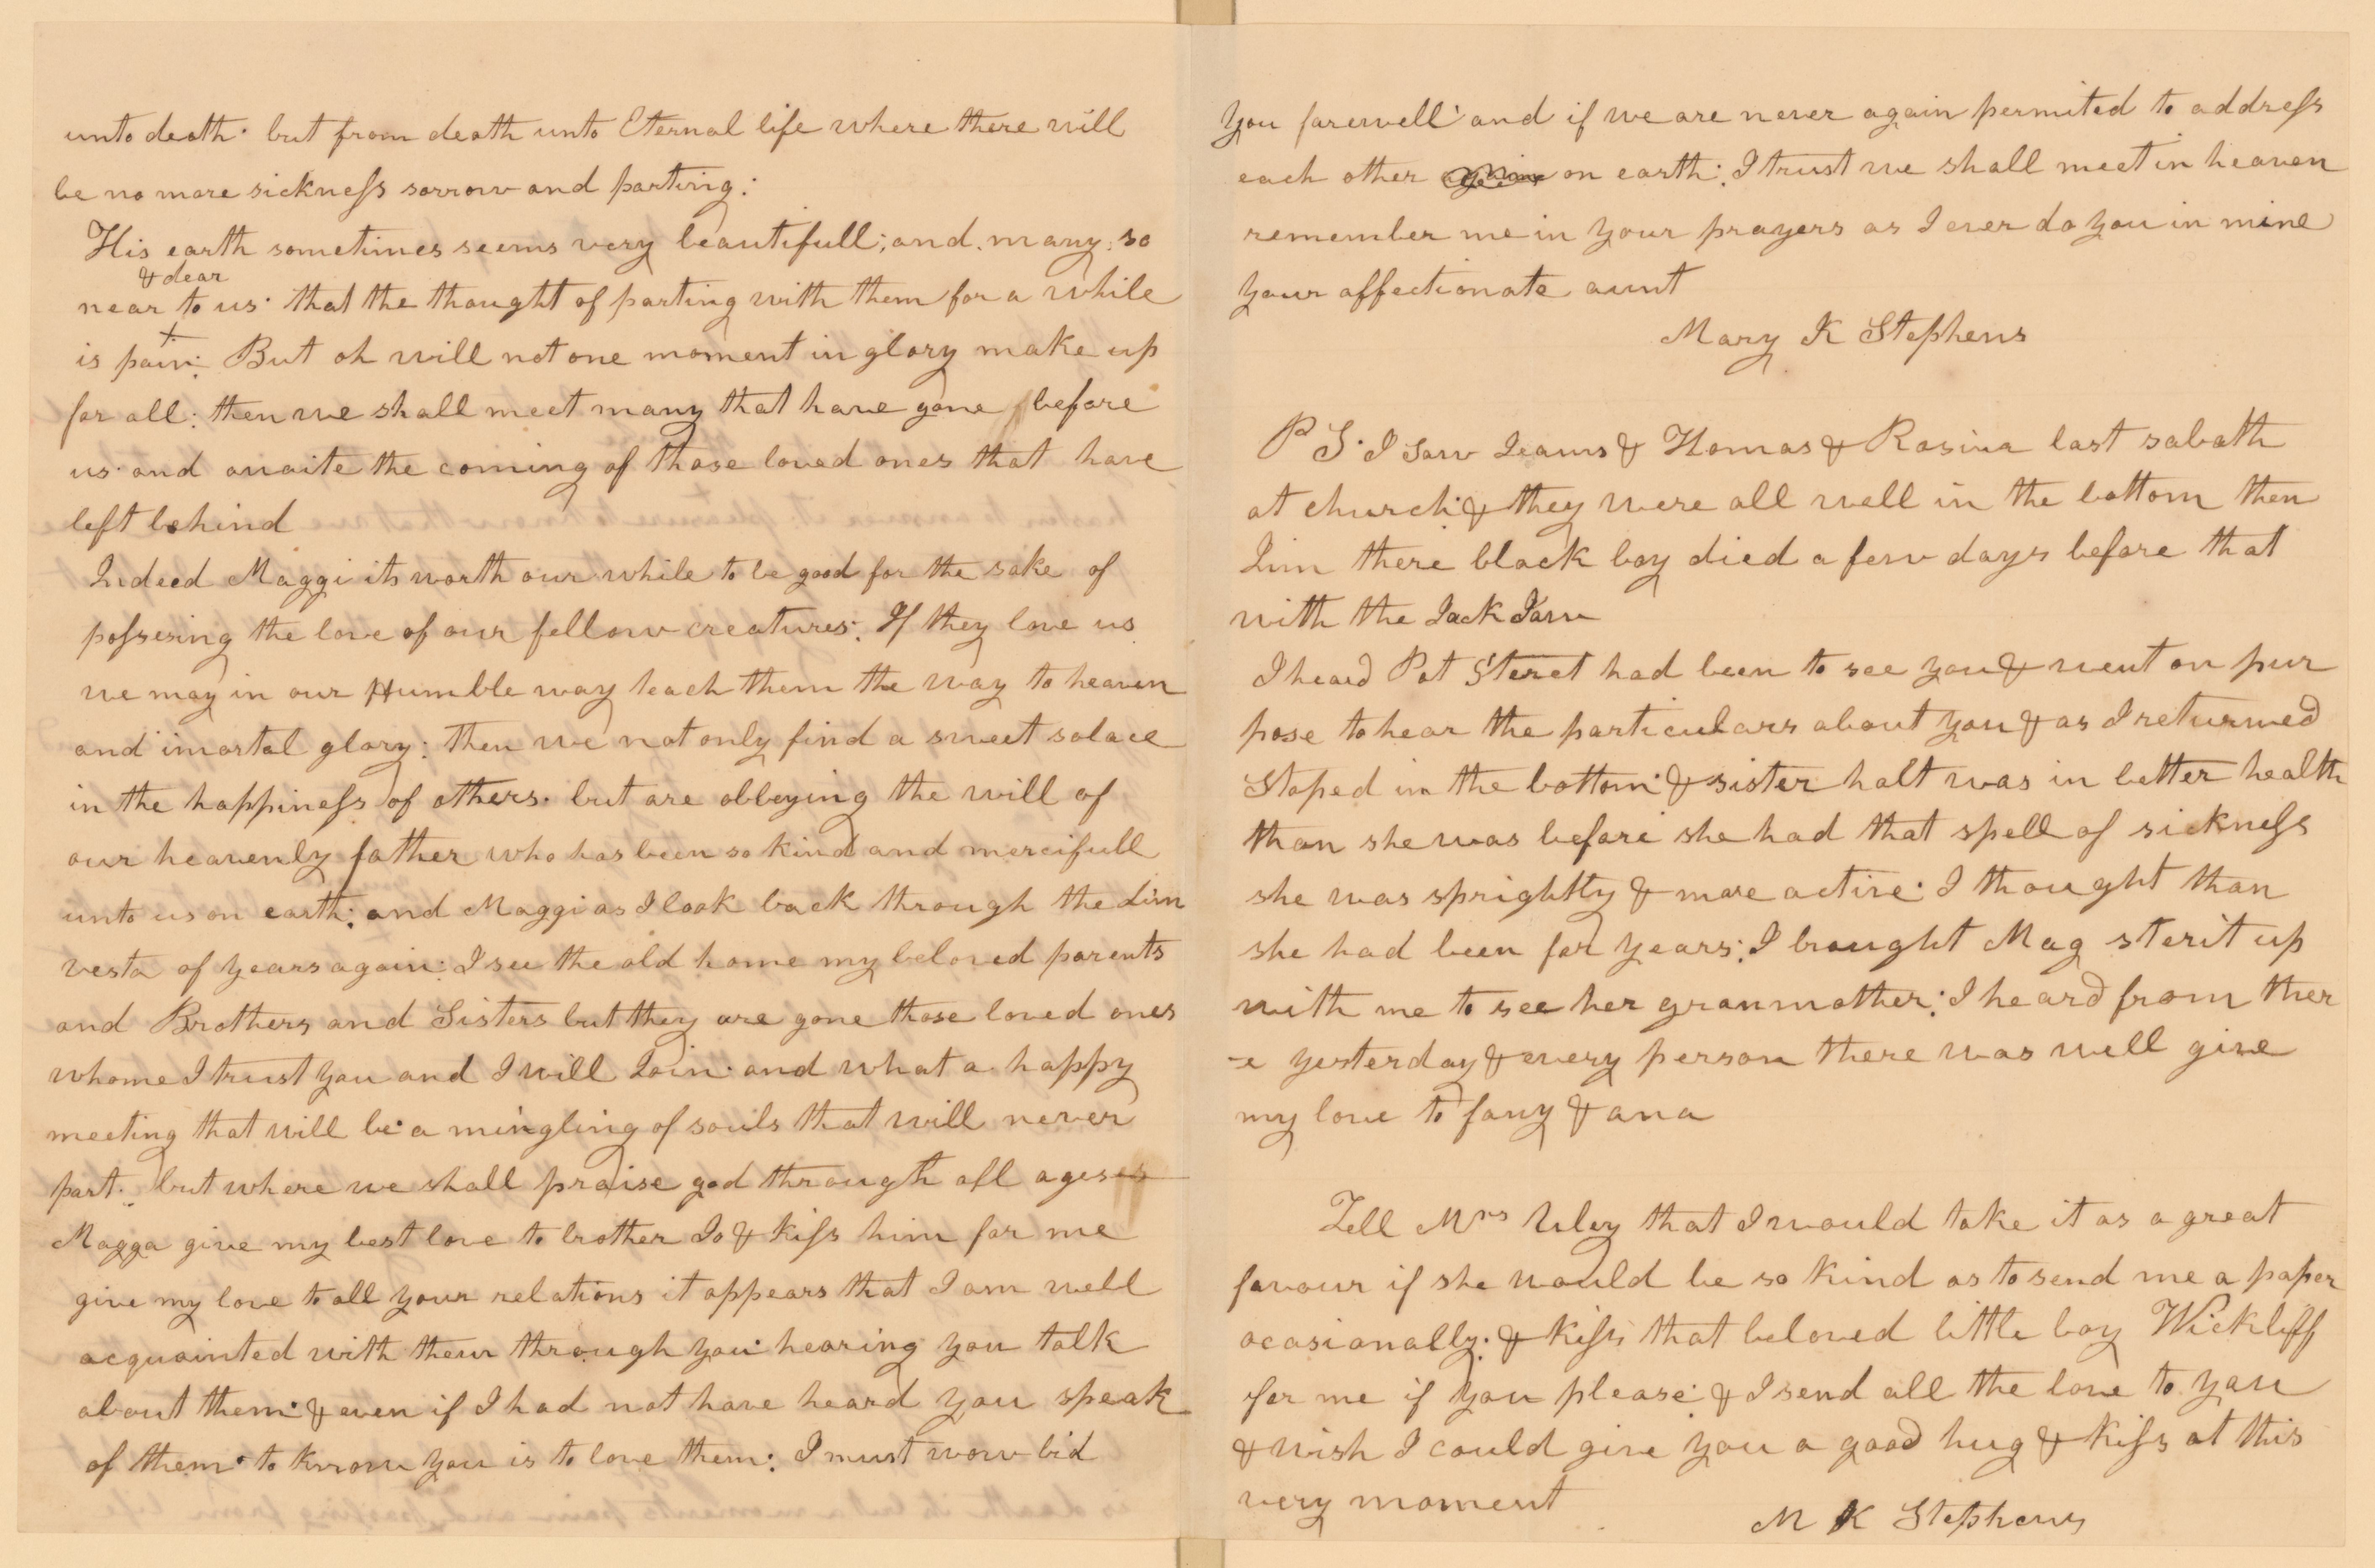 unto death. but from death unto Eternal life where there will
be no more sickness sorrow and parting:
His earth sometimes seems very beautifull; and many. so
& dear
near to us. that the thought of parting with them for a while
is pain: But oh will not one moment in glory make up
for all: then we shall meet many that have gone before
us. and awaite the coming of those loved ones that have
left behind
Indeed Maggi its worth our while to be good for the sake of
possesing the love of our fellow creatures: If they love us
we may in our Humble way teach them the way to heaven
and imortal glory: then we not only find a sweet solace
in the happiness of others. but are obbeying the will of
our heavenly father who has been so kind and mercifull
unto us on earth: and Maggi as I look back through the dim
vesta of years again: I see the old home my beloved parents
and Brothers and Sisters but they are gone those loved ones
whome I trust you and I will Join. and what a happy
meeting that will be. a mingling of souls that will never
part. but where we shall praise god through all ages
Magga give my best love to brother Jo & kiss him for me
give my love to all your relations it appears that I am well
acquainted with them through you. hearing you talk
about them. & even if I had not have heard you speak
of them. to know you is to love them: I must now bid
you farewell and if we are never again permited to address
each other on earth: I trust we shall meet in heaven
remember me in your prayers as I ever do you in mine
your affectionate aunt
Mary K Stephens
P S. I saw & Thomas & Rosina last sabath
at church. & they were all well in the bottom then
Jim there black boy died a few days before that
with the Lock Jaw
I heard Pat Steret had been to see you & went on pur
pose to hear the particulars about you & as I returned
Stoped in the bottom. & sister halt was in better health
than she was before she had that spell of sickness
she was sprightly & more active. I thought than
she had been for years: I brought Mag sterit up
with me to see her granmother: I heard from ther
-e yesterday & every person there was well give
my love to fany & ana
Tell Mrs Uley that I would take it as a great
favour if she would be so kind as to send me a paper
ocasionally: & kiss that beloved little boy Wickliff
for me if you please. & I send all the love to you
& wish I could give you a good hug & kiss at this
very moment
M K Stephens